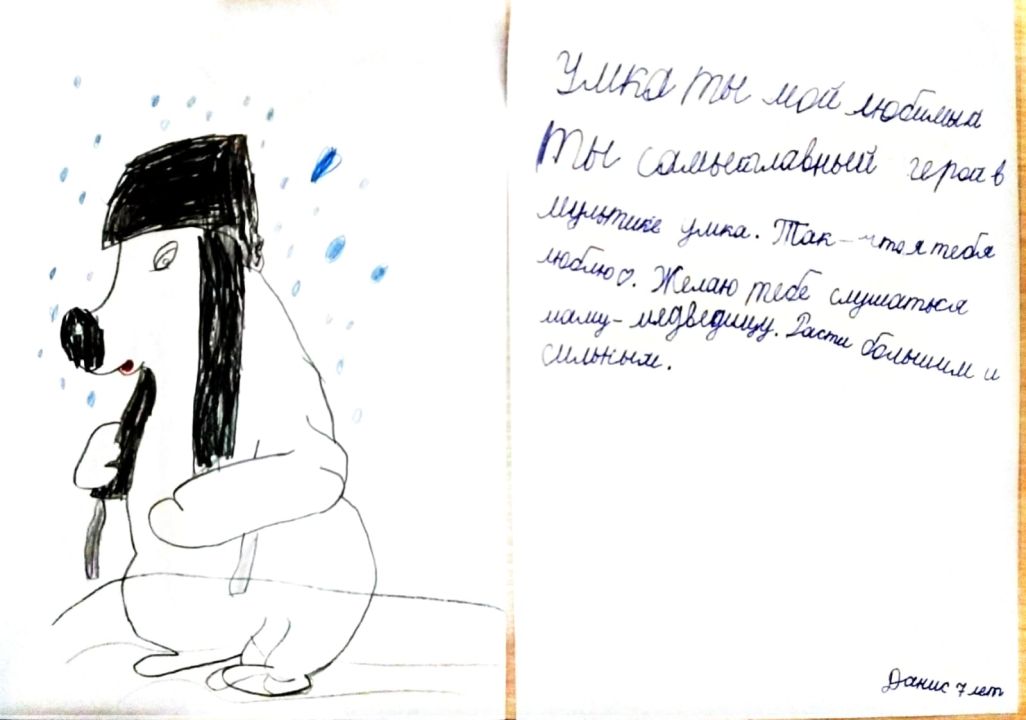 Умка ты мой любимый
Ты самыйглавный героа в
мультике умка. Так-что я тебя
люблю♡. Желаю тебе слушаться
маму-медведицу. Расти большим и
сильным.
Данис 7 лет